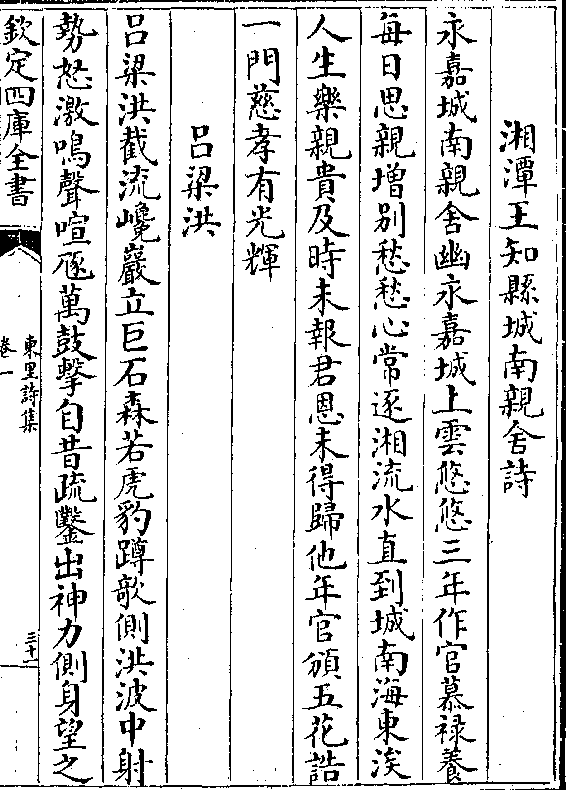 湘潭王知縣城南親舍詩
永嘉城南親舍幽永嘉城上雲悠悠三年作官慕祿養
每日思親增别愁愁心常逐湘流水直到城南海東涘
人生樂親貴及時未報君恩未得歸他年官頒五花誥
一門慈孝有光輝
吕梁洪
吕梁洪截流巉巖立巨石森若虎豹蹲欹側洪波中射
勢怒激鳴聲喧豗萬鼓擊自昔疏鑿出神力側身望之
欽定四庫全書
東里詩集
卷一
三十一